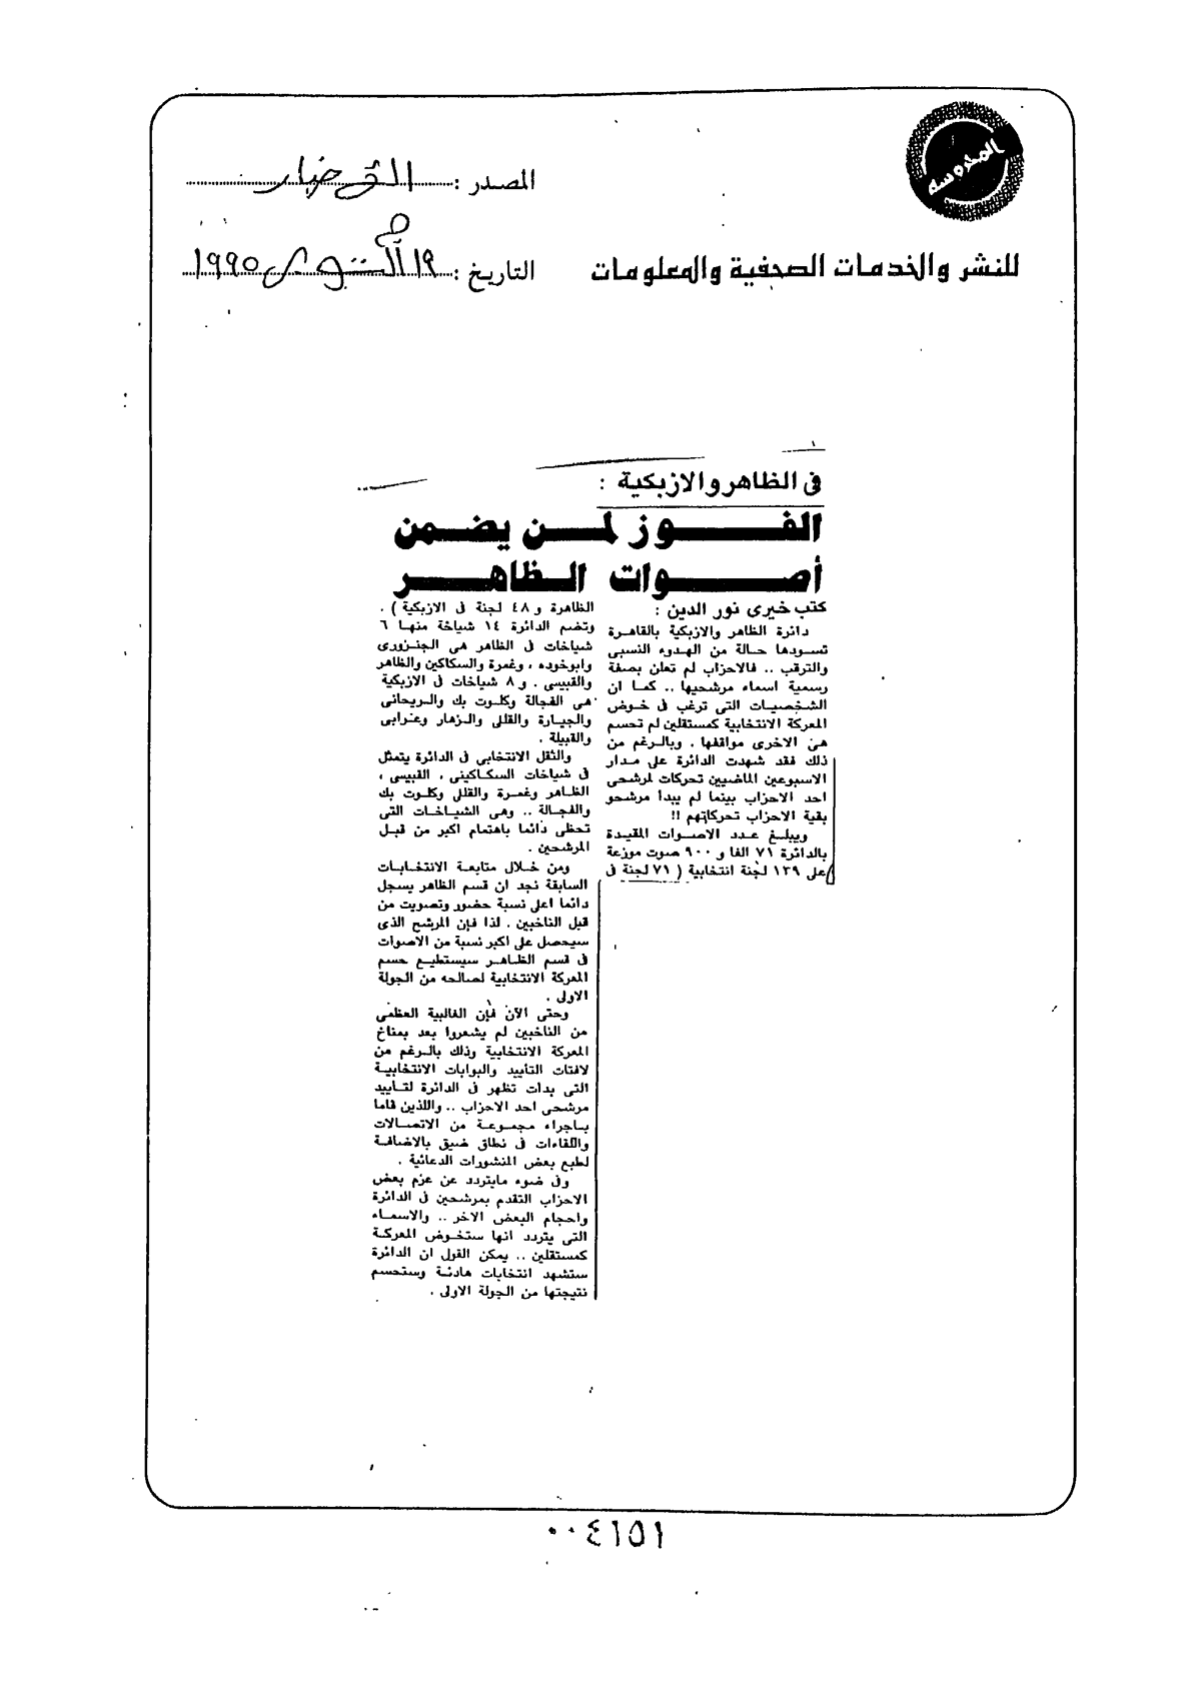 المحروسة
المصدر : الأخبار
للنشر والخدمات الصحفية والمعلومات
التاريخ : ١٩ أكتوبر ١٩٩٠
فى الظاهر والازبكية :
الفوز لمن يضمن
أصوات الظاهر
كتب خيرى نور الدين :
دائرة الظاهر والازبكية بالقاهرة
تسودها حالة من الهدوء النسبى
والترقب .. فالاحزاب لم تعلن بصفة
رسمية اسماء مرشحيها .. كما ان
الشخصيات التى ترغب فى خوض
المعركة الانتخابية كمستقلين لم تحسم
هى الاخرى مواقفها . وبالرغم من
ذلك فقد شهدت الدائرة على مدار
الاسبوعين الماضيين تحركات لمرشحى
احد الاحزاب بينما لم يبدأ مرشحو
بقية الاحزاب تحركاتهم !!
ويبلغ عدد الاصوات المقيدة
بالدائرة ٧١ الفا و ٩٠٠ صوت موزعة
على ١٢٩ لجنة انتخابية ( ٧١ لجنة فى
الظاهرة و ٤٨ لجنة فى الازبكية ) .
وتضم الدائرة ١٤ شياخة منها ٦
شياخات فى الظاهر هى الجنزورى
وابوخوده ، وغمرة والسكاكين والظاهر
والقبيسى . و ٨ شياخات فى الازبكية
هى الفجالة وكلوت بك والريحانى
والجيارة والقللى والزهار وعرابى
والقبيلة .
والثقل الانتخابى فى الدائرة يتمثل
فى شياخات السكاكينى ، القبيسى ،
الظاهر وغمرة والقللى وكلوت بك
والفجالة .. وهى الشياخات التى
تحظى دائما باهتمام اكبر من قبل
المرشحين .
ومن خلال متابعة الانتخابات
السابقة نجد ان قسم الظاهر يسجل
دائما اعلى نسبة حضور وتصويت من
قبل الناخبين . لذا فإن المرشح الذى
سيحصل على اكبر نسبة من الاصوات
فى قسم الظاهر سيستطيع حسم
المعركة الانتخابية لصالحه من الجولة
الاولى .
وحتى الآن فإن الغالبية العظمى
من الناخبين لم يشعروا بعد بمناخ
المعركة الانتخابية وذلك بالرغم من
لافتات التأييد والبوابات الانتخابية
التى بدات تظهر فى الدائرة لتأييد
مرشحى احد الاحزاب .. واللذين قاما
باجراء مجموعة من الاتصالات
واللقاءات فى نطاق ضيق بالاضافة
لطبع بعض المنشورات الدعائية .
وفى ضوء مايتردد عن عزم بعض
الاحزاب التقدم بمرشحين فى الدائرة
واحجام البعض الاخر .. والاسماء
التى يتردد انها ستخوض المعركة
كمستقلين .. يمكن القول ان الدائرة
ستشهد انتخابات هادئة وستحسم
نتيجتها من الجولة الاولى .
٠٠٤١٥١